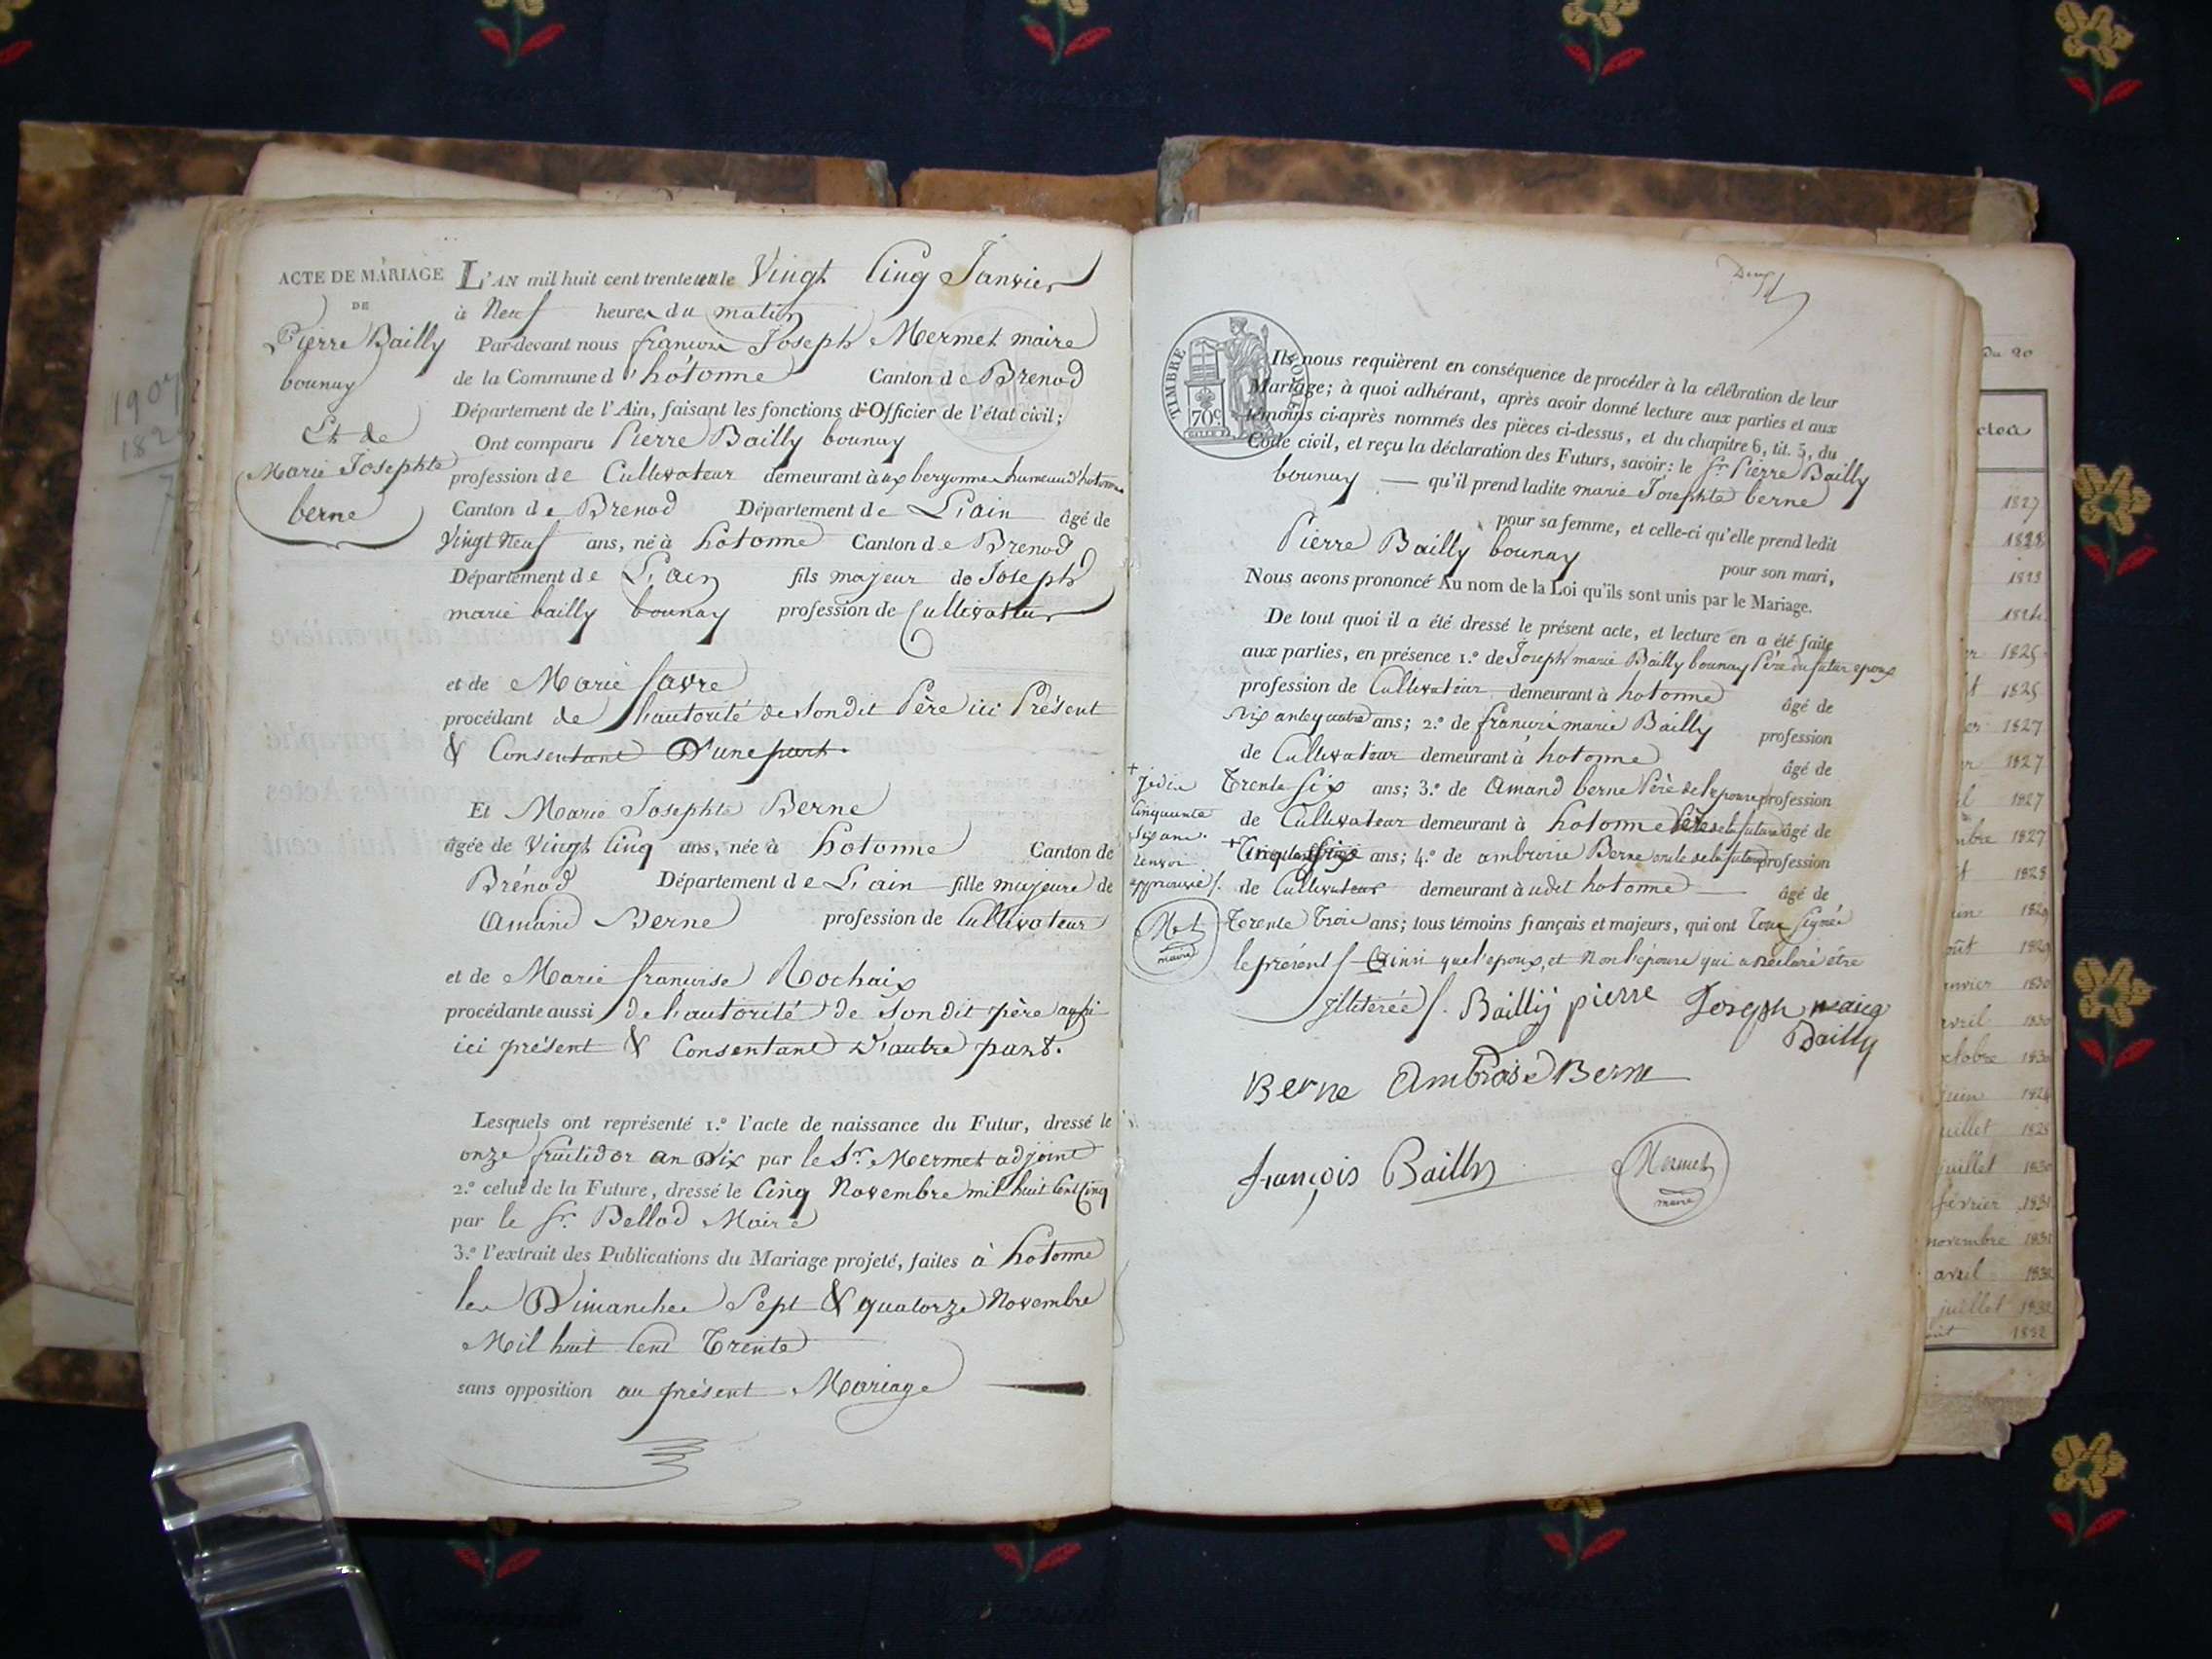 ACTE DE MARIAGE
DE
Pierre Bailly
bounay
Et de
Marie Josephte
berne
L'AN mil huit cent trente un le Vingt Cinq Janvier
à Neuf heures du matin
Par-devant nous françois Joseph Mermet maire
de la Commune d'hotonne Canton de Brenod
Département de l'Ain, faisant les fonctions d'Officier de l'état civil;
Ont comparu Pierre Bailly bounay
profession de Cultivateur demeurant à aux bergonnes hameau d'hotonne
Canton de Brenod Département de L'ain âgé de
Vingt Neuf ans, né à hotonne Canton de Brenod
Département de L'ain fils majeur de Joseph
marie bailly bounay profession de Cultivateur
et de Marie favre
procédant de l'autorité de sondit Père ici Présent
& Consentant D'une part.
Et Marie Josephte Berne
âgée de Vingt Cinq ans, née à hotonne Canton de
Brénod Département de L'ain fille majeure de
Amand Berne profession de Cultivateur
et de Marie françoise Rochaix
procédante aussi de l'autorité de son dit père aussi
ici présent & Consentant D'autre part.
Lesquels ont représenté 1.º l'acte de naissance du Futur, dressé le
onze fructidor an Dix par le Sr. Mermet adjoint
2.º celui de la Future, dressé le Cinq Novembre mil huit Cent Cinq
par le Sr. Bellod Maire
3.º l'extrait des Publications du Mariage projeté, faites à hotonne
les Dimanches Sept & quatorze Novembre
Mil huit Cent Trente
sans opposition au présent Mariage
TIMBRE ROYAL
70 c
Ils nous requièrent en conséquence de procéder à la célébration de leur
Mariage; à quoi adhérant, après avoir donné lecture aux parties et aux
témoins ci-après nommés des pièces ci-dessus, et du chapitre 6, tit. 5, du
Code civil, et reçu la déclaration des Futurs, savoir: le Sr. Pierre Bailly
bounay — qu'il prend ladite marie Josephte berne
pour sa femme, et celle-ci qu'elle prend ledit
Pierre Bailly bounay pour son mari,
Nous avons prononcé Au nom de la Loi qu'ils sont unis par le Mariage.
De tout quoi il a été dressé le présent acte, et lecture en a été faite
aux parties, en présence 1.º de Joseph marie Bailly bounay Père du futur epoux
profession de Cultivateur demeurant à hotonne âgé de
ans; 2.º de françois marie Bailly profession
de Cultivateur demeurant à hotonne âgé de
Trente Six ans; 3.º de Amand berne Père de l'epouse profession
de Cultivateur demeurant à hotonne Père de la future âgé de
ans; 4.º de ambroise Berne oncle de la future profession
de Cultivateur demeurant à udit hotonne âgé de
Trente Trois ans; tous témoins français et majeurs, qui ont Tous Signés
le présent Ainsi que l'epoux, et Non l'épouse qui a déclaré être
illeterée. Bailly pierre Joseph marie
Bailly
Berne Ambroise Berne
françois Bailly
Mermet
maire
+ je dis
Cinquante
Six ans.
renvoi
approuvé
Met
maire
1827
1828
1825
1825
1827
1827
1827
mbre 1827
1828
1829
oût 1829
anvier 1830
avril 1830
octobre 1830
juin 1824
juillet 1825
juillet 1830
février 1831
novembre 1831
avril 1832
juillet 1832
1832